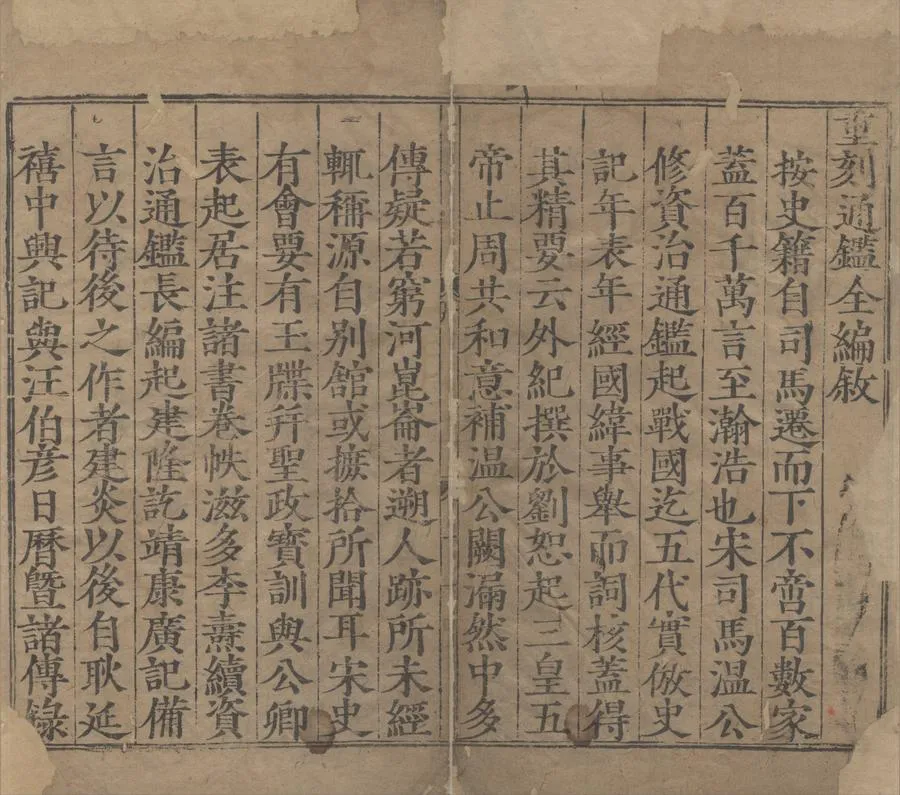 重刻通鑑全編敘
按史籍自司馬遷而下不啻百數家
蓋百千萬言至瀚浩也宋司馬溫公
修資治通鑑起戰國迄五代實倣史
記年表年經國緯事舉而詞核蓋得
其精要云外紀撰於劉恕起三皇五
帝止周共和意補溫公闕漏然中多
傳疑若窮河崑崙者遡人跡所未經
輒稱源自别館或摭拾所聞耳宋史
有會要有玉牒幷聖政寳訓與公卿
表起居注諸書卷帙滋多李燾續資
治通鑑長編起建隆訖靖康廣記備
言以待後之作者建炎以後自耿延
禧中興記與汪伯彦日曆暨諸傳錄